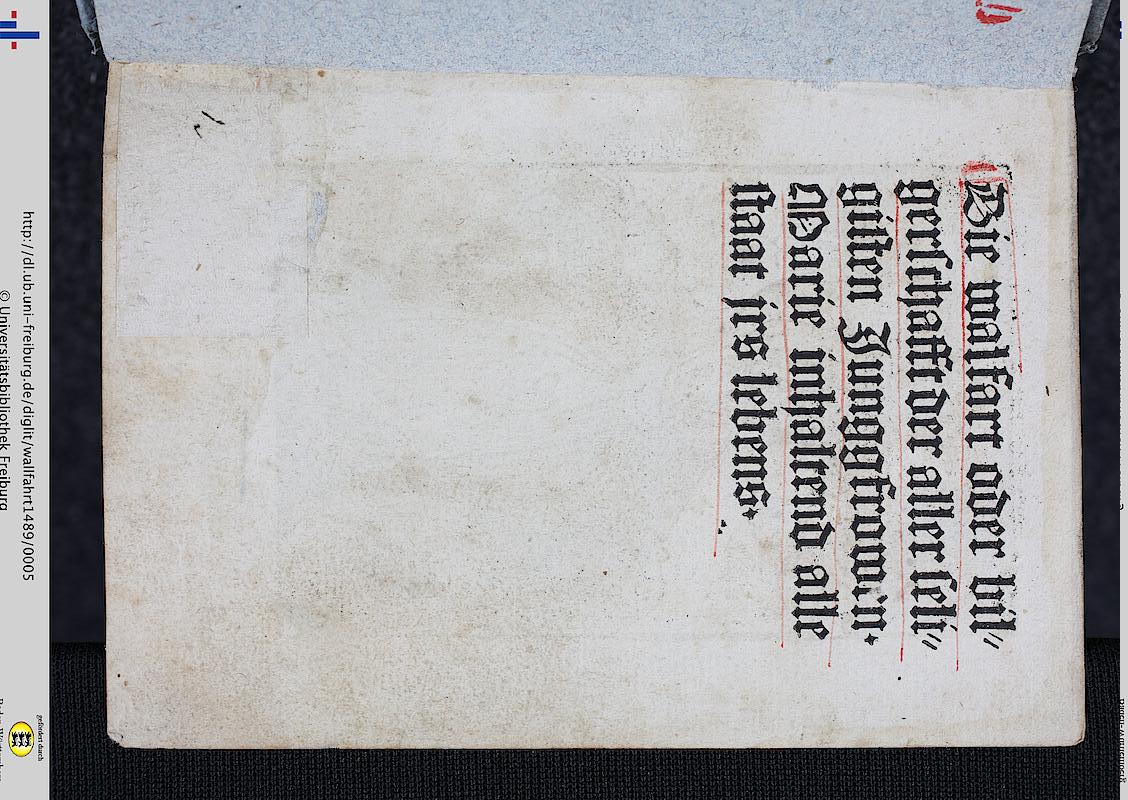 Die walfart oder bil〃
gerschafft der aller seli〃
gisten Junggfrowen.
Marie inhaltend alle
staat jrs lebens.
http://dl.ub.uni-freiburg.de/diglit/wallfahrt1489/0005
© Universitätsbibliothek Freiburg
gefördert durch